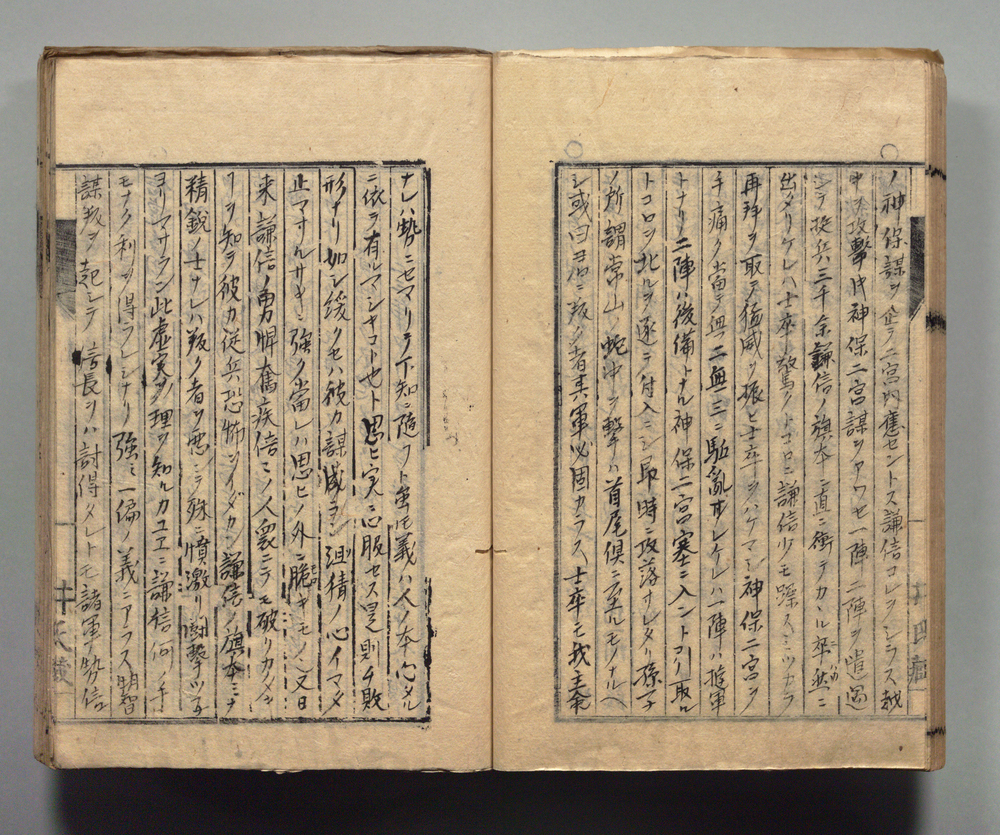 ノ神保謀ヲ企テ二宮内應セントス謙信コレヲシラス越
中ヲ攻擊ノ片神保二宮謀ヲアワセ一陣二陣ヲ遣過
シテ投兵三千余謙信ノ旗本ニ直ニ衝テカヽル
出タリケレハ士卒驚クトコロニ謙信少モ躁スミツカラ
再拜ヲ取テ猛威ヲ振ヒ士卒ヲハケマシ神保二宮ヲ
手痛ク當テ無二無三ニ駈亂サレケレハ一陣ハ後軍
トナリ二陣ハ後備トナル神保二宮塞ニ入ントコリ取ル
トコロヲ北ルヲ逐テ付入ニシ即時ニ攻落サレタリ孫子
ノ所謂常山ノ蛇沖ヲ擊ハ首尾俱ニ至ルモノナルヘ
シ或曰君ニ叛ノ者其軍必固カラス士卒モ我主
ナレハ勢ニセマリテ下知ニ隨フト虽モ義ハ人ノ本心タル
ニ依テ有ルマシキコト也ト思ヒ実ニ心服セス是則チ敗
形ナリ如シ緩クセハ彼カ謀成ラン沮積ノ心イマタ
止マサルサキニ強ク當レハ思ヒノ外ニ脆キモノ又日
来謙信ノ勇悍奮疾倍ミノ人衆ニテモ破リカタキ
ヲ知テ彼カ従兵恐怖ヲイダカン謙信ノ旗本ミナ
精鋭ノ士ナレハ叛ク者ヲ悪ミテ殊ニ憤激リ樹擊ツ
ヨリマサラン此虚実ノ理ヲ知ルカユエニ謙信何ノ手
モナク利ヲ得ラレシナリ強ミ一偏ノ義ニアラス明智
謀叛ヲ起シテ信長ヲハ討得タレトモ諸軍ノ勢信